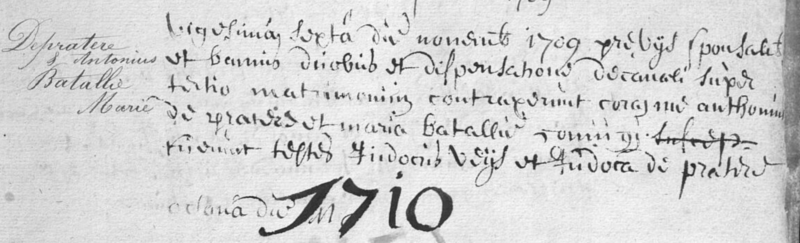 Depratere
& Antonius
Batallie
Marie
vigesima sexta die novemb 1709 previjs sponsalib
et bannis duobus et dispensatione decanali super
tertio matrimonium contraxerunt coram me anthonius
de pratere et maria batallie coniugi
fuerunt testes Judocus Veys et Judoca de pratere
octava die
1710